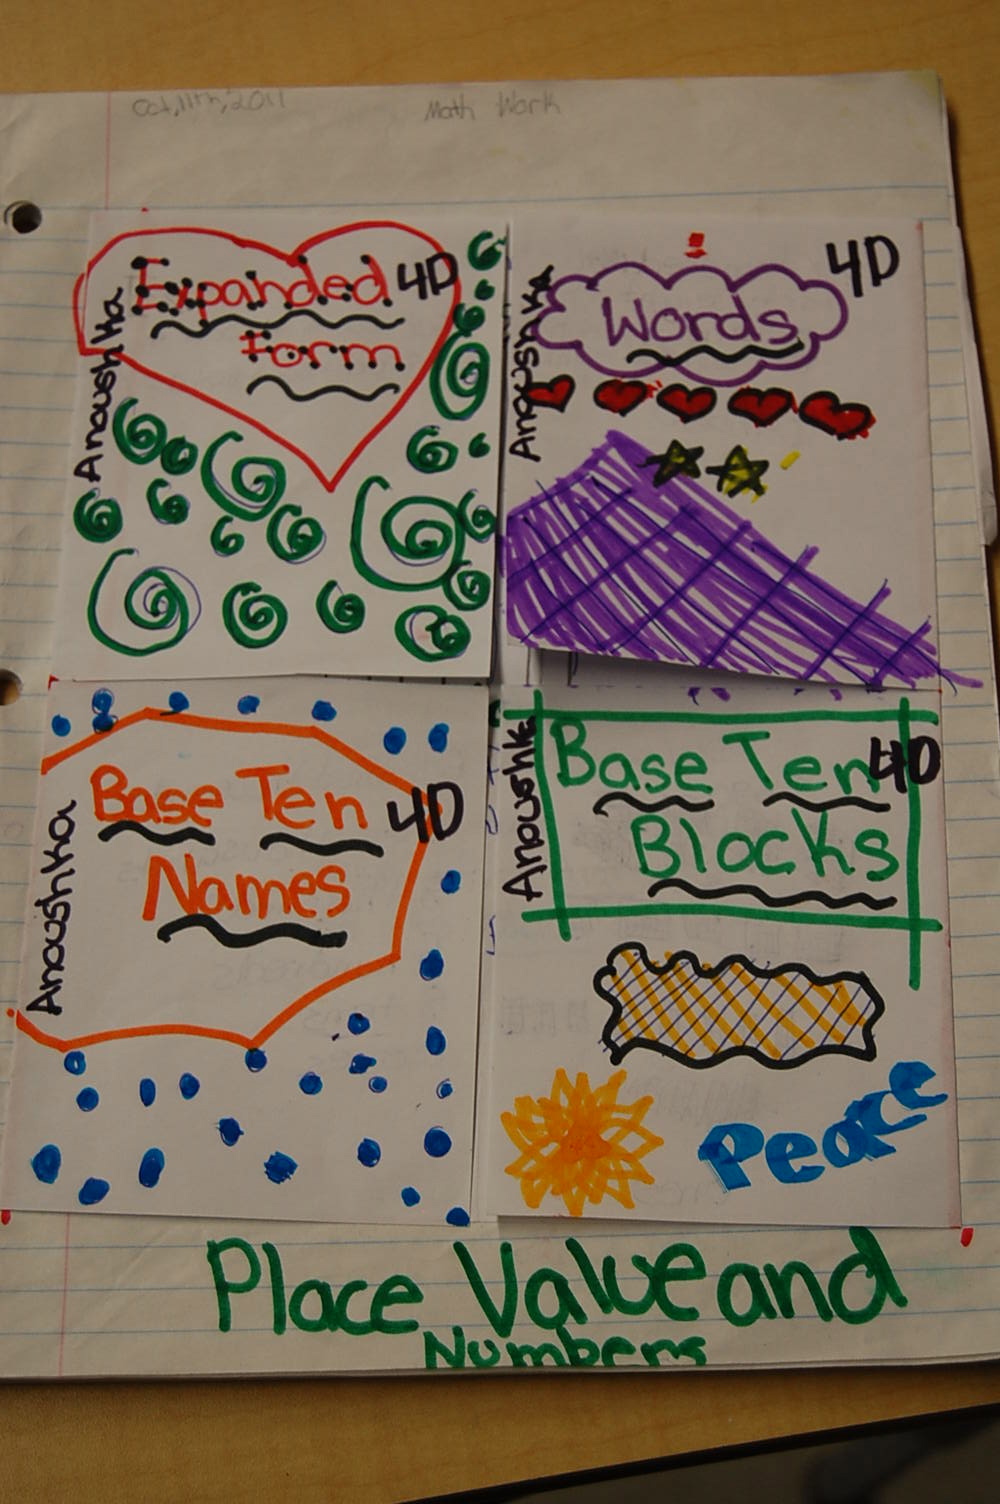 Oct,11th,2011 Math Work
Expanded 4D
Form
Anoushka
Words 4D
Anoushka
Base Ten 4D
Names
Anoushka
Base Ten 4D
Blocks
Anoushka
Peace
Place Value and
Numbers